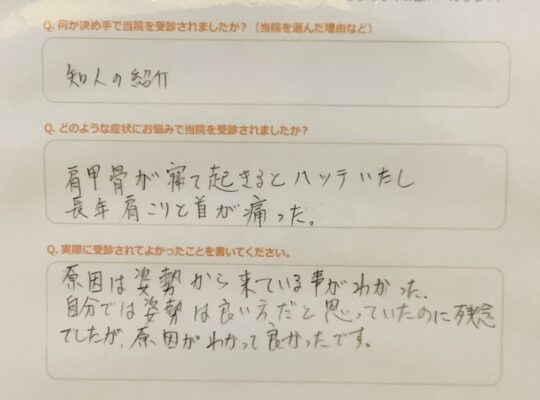 Q. 何が決め手で当院を受診されましたか？（当院を選んだ理由など）
知人の紹介
Q. どのような症状にお悩みで当院を受診されましたか？
肩甲骨が寝て起きるとハッテいたし
長年肩こりと首が痛った。
Q. 実際に受診されてよかったことを書いてください。
原因は姿勢から来ている事がわかった、
自分では姿勢は良い方だと思っていたのに残念
でしたが、原因がわかって良かったです。